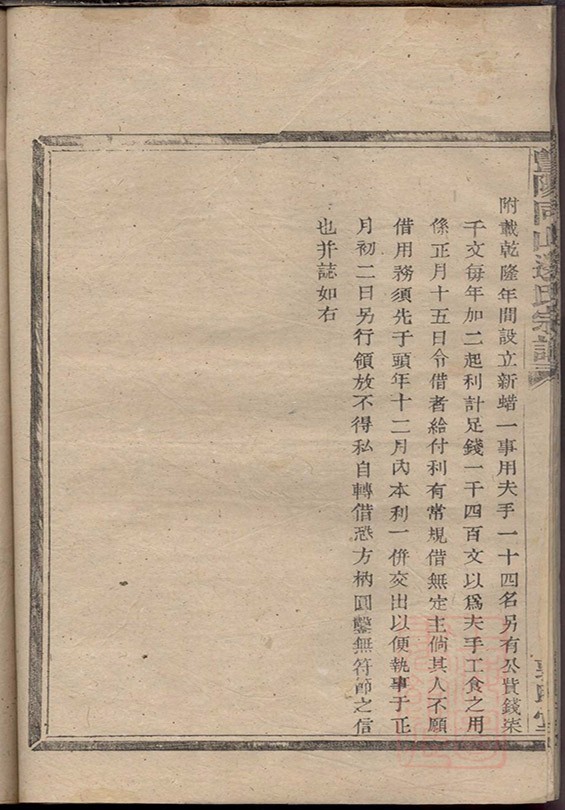 附載乾隆年間設立新蜡一事用夫手一十四名另有公貲錢柒
千文每年加二起利計足錢一千四百文以爲夫手工食之用
係正月十五日令借者給付利有常規借無定主倘其人不願
借用務須先于頭年十二月內本利一併交出以便執事于正
月初二日另行領放不得私自轉借恐方枘圓鑿無符節之信
也并誌如右